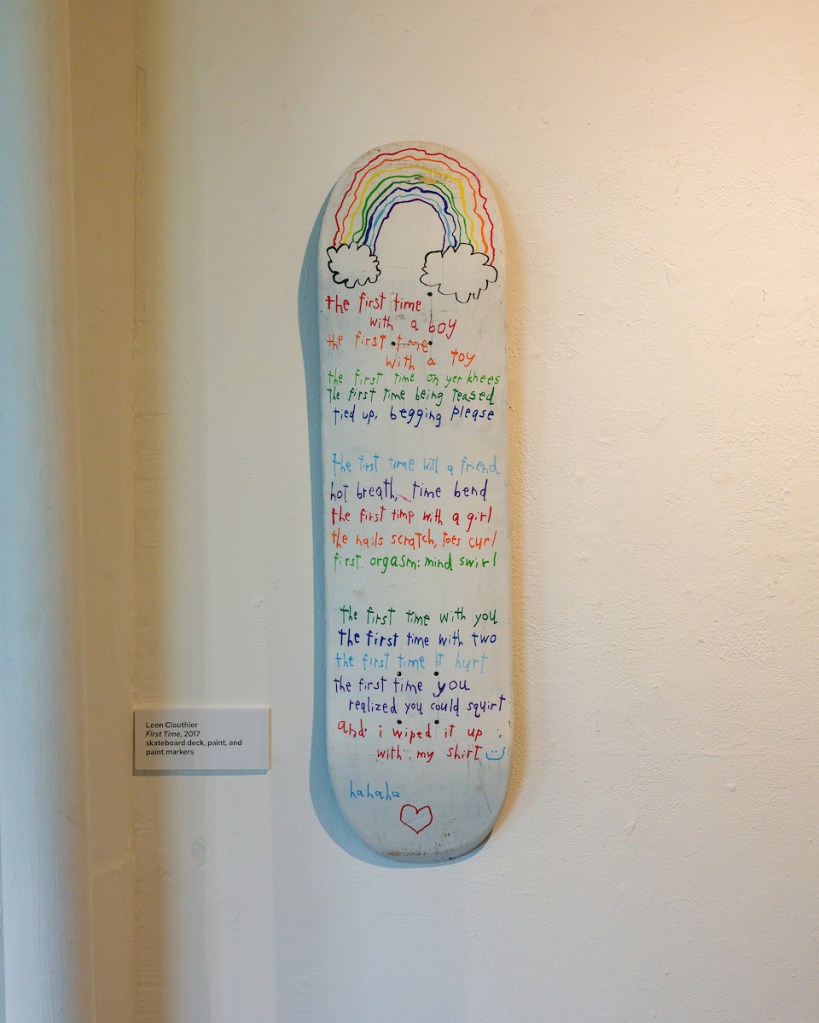 the first time
with a boy
the first time
with a toy
the first time on yer knees
the first time being teased
tied up, begging please
the first time with a friend
hot breath, time bend
the first time with a girl
the nails scratch, toes curl
first orgasm: mind swirl
the first time with you
the first time with two
the first time it hurt
the first time you
realized you could squirt
and i wiped it up
with my shirt :)
hahaha
Leon Clouthier
First Time, 2017
skateboard deck, paint, and
paint markers